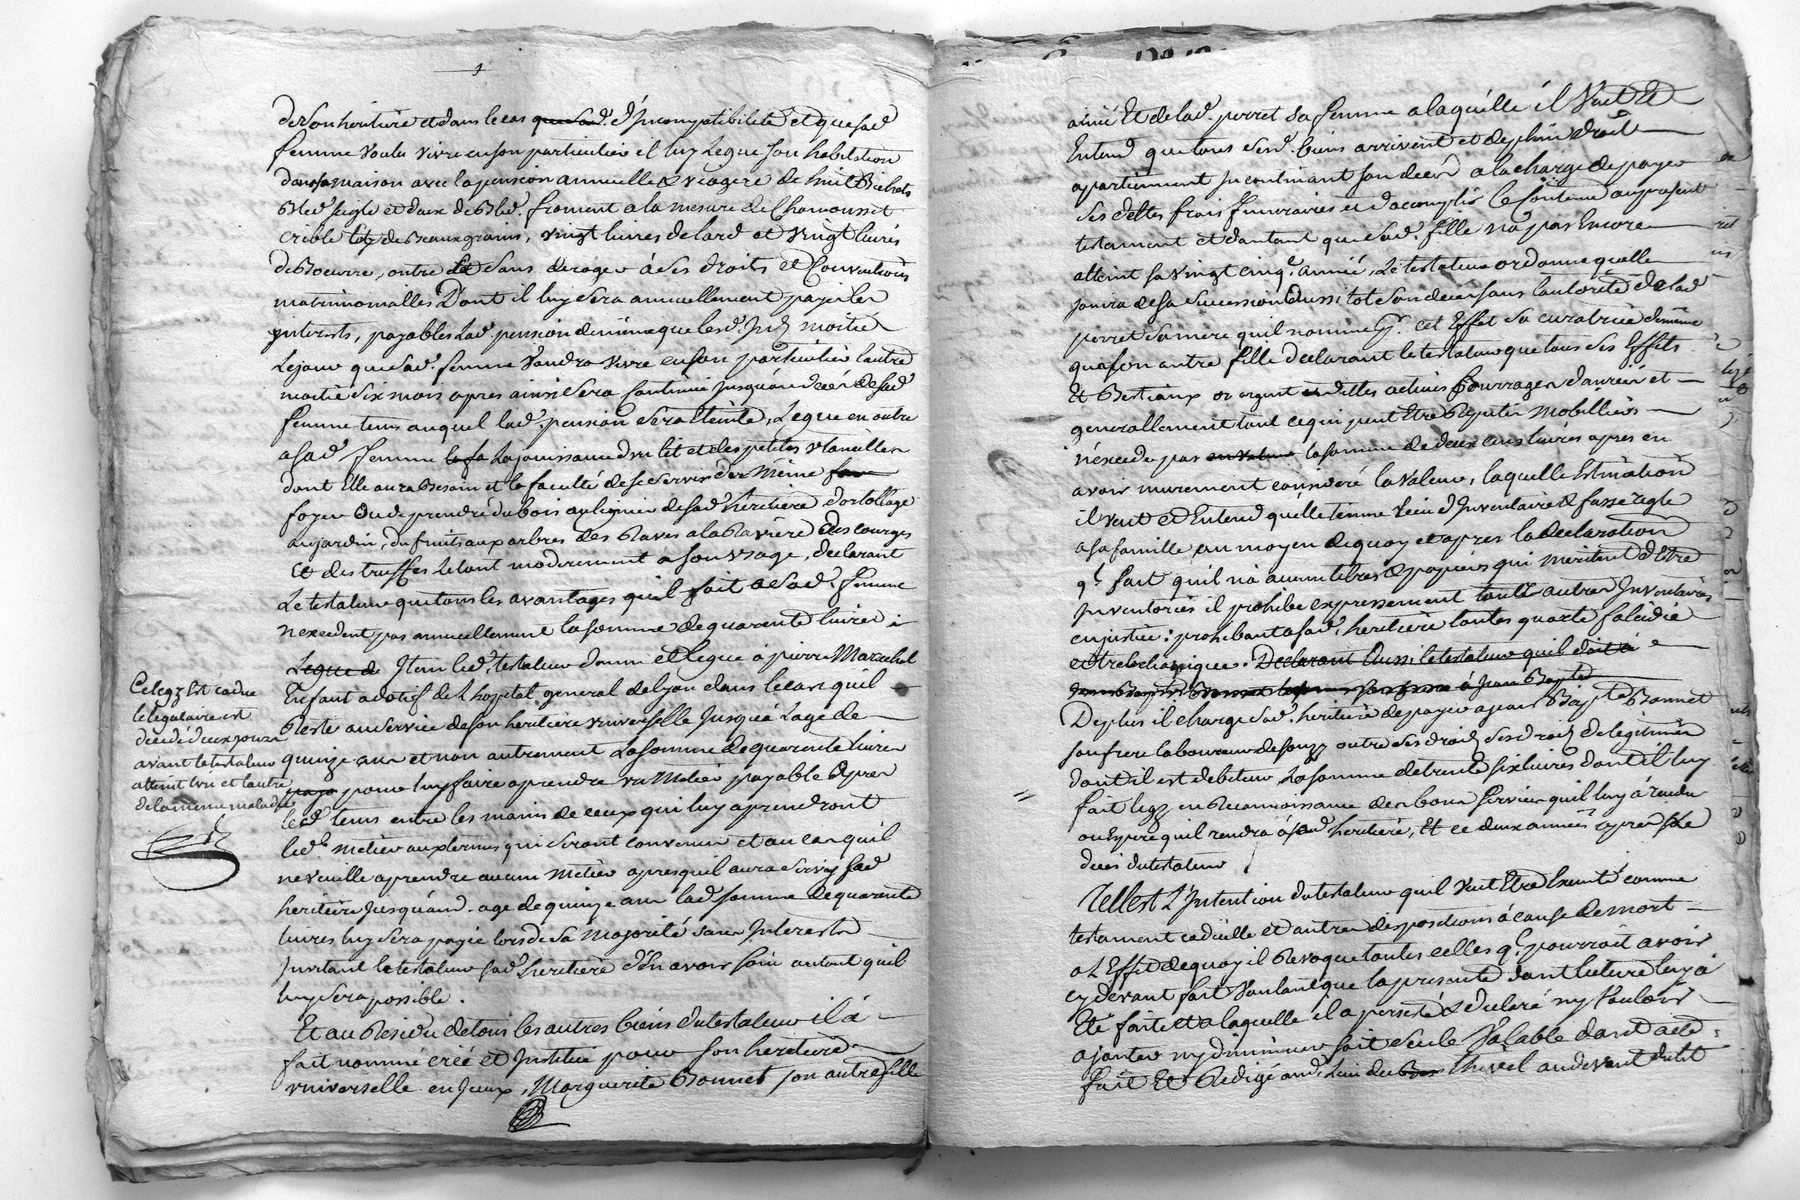 de son heritière et dans le cas que sad. d'Jncompatibilité et que sad.
femme voulu vivre en son particulier il luy Legue son habitation
dans sa maison avec la pension annuelle & viagere de huit Bichets
Bled seigle et deux de Bled froment a la mesure de Chamousset
crible de Beaux grains, vingt livres de lard et vingt livres
de Boeurre, outre et sans deroger à ses droits et Conventions
matrimonialles Dont il luy sera annuellement payé les
ynterests, payables lad. pension de même que lesd. moitié
Le jour que sad. femme Vaudra vivre en son particulier l'autre
moitié six mois apres ainsi sera Continué jusqu'au décés de sad.
femme tems auquel lad. pension sera Eteinte, Legue en outre
a sad. femme la jouissance d'un lit et des petites Utancilles
dont Elle aura Besoin et la faculté de se servir du Même
foyer ou de prendre du bois au lignier de sad. heritière d'ortollage
au jardin, du fruits aux arbres des Raves a la Ravière des courges
et des truffes Le tout moderement a son usage, declarant
Le testateur que tous les avantages qu'il fait a sad. femme
n'excedent pas annuellement la somme de quarante livres
Legue de Jtem led. testateur donne et Legue à pierre Marechal
Enfant adotif de L'hospital general de lyon dans le cas qu'il
Reste au service de son heritière universelle Jusqu'à L'age de
quinze ans et non autrement La somme de quarante livres
pour luy faire aprendre un Metier payable Apres
led. tems entre les mains de ceux qui luy aprendront
led. Metier aux termes qui seront convenus et au cas qu'il
ne veuille aprendre aucun Metier apres qu'il aura servy sad.
heritière jusqu'aud. age de quinze ans lad. somme de quarante
livres luy sera payée lors de sa Majorité sans Jnterests
Jnvitant le testateur sad. heritière d'En avoir soin autant qu'il
luy sera possible.
Et au Residu de tous les autres biens du testateur il à
fait nommé créé et Jnstitué pour son heritière
universelle Marguerite Bonnet son autre fille
Ce legz Est caduc
le legataire est
décédé
avant le testateur
atteint lun et l'autre
de la meme maladie
ainée Et de lad. perret sa femme a laquelle il Veut Et
Entend que tous sesd. biens arrivent et de plein droit
apartiennent Jncontinant son decés a la charge de payer
ses dettes frais funeraires et d'acomplir le Contenu au present
testament et d'autant que sad. fille n'a pas Encore
atteint sa vingt cinqe. année, Le testateur ordonne quelle
jouira de sa succession Aussi tot son decés sans l'autorité de lad.
perret sa mere qu'il nomme à cet Effet sa curatrice de même
qu'a son autre fille declarant le testateur que tous ses Effets
Et Bestiaux or argent dettes actives fourrages danrées et
generallement tout ce qui peut Etre Reputé Mobilliers
n'éxcede pas en valeur la somme de deux cens livres apres en
avoir murement consideré la Valeur, laquelle Estimation
il veut et Entend qu'elle tienne Lieu d'Jnventaire & fasse regle
a sa famille au moyen de quoy et apres la declaration
qt. fait qu'il n'a aucun titres & papiers qui meritent d'Etre
Jnventoriés il prohibe expressement toutte autres Jnventaires
en justice; prohibant a sad. heritiere toutes quarte falcidie
et trebelianique. Declarant Aussi le testateur qu'il doit à
à Jean Bapte
De plus il charge sad. heritiere de payer a jean Bapte Bonnet
son frere laboureur de outre ses droits de legitimes
dont il est debiteur La somme de trente six livres dont il luy
fait legz en Reconnoissance des bons services qu'il luy à rendu
ou Esperé qu'il rendra à sad. heritiere, Et ce deux années apres le
decés du testateur
Tell est L'Jntention du testateur qu'il veut Etre Executé comme
testament codicille et autres dispositions à cause de mort
a L'Effet de quoy il Revoque toutes celles qt. pourroit avoir
cy devant fait Voulant que la presente dont lecture luy à
Eté faite et a laquelle il a persisté & declaré n'y Vouloir
ajouter ny diminuer soit seule Valable dont acte
fait Et Redigé aud. Lieu du Thivel au devant du lit